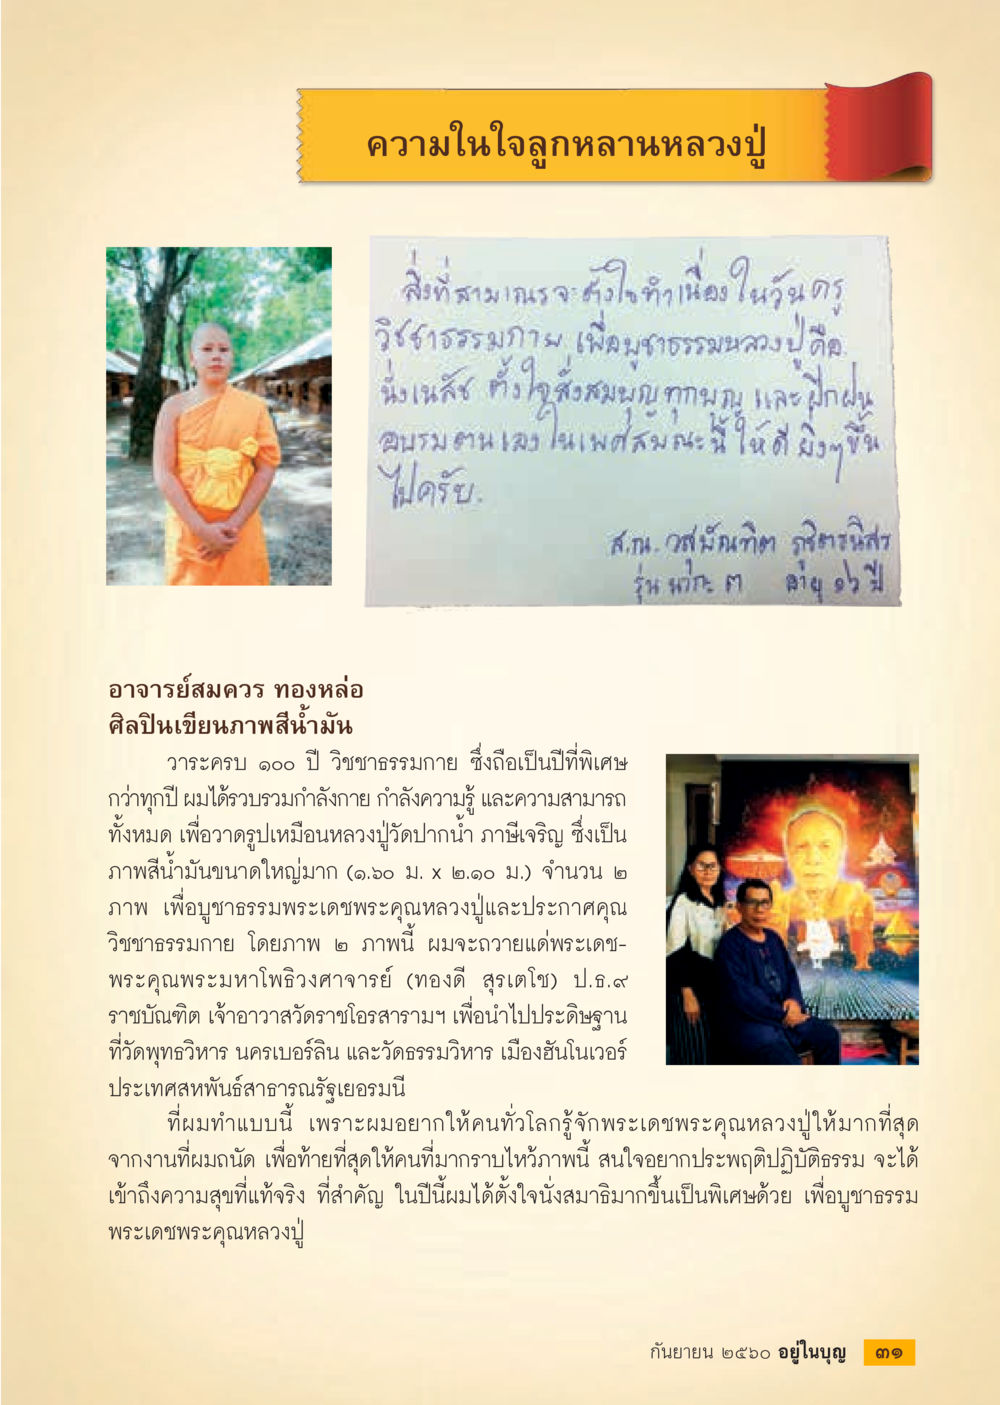 ความในใจลูกหลานหลวงปู่
สิ่งที่สามเณรจะตั้งใจทำเนื่องในวันครู
วิชชาธรรมกาย เพื่อบูชาธรรมหลวงปู่คือ
นั่งเนสัช ตั้งใจสั่งสมบุญทุกบุญ และฝึกฝน
อบรมตนเองในเพศสมณะนี้ให้ดียิ่งๆขึ้น
ไปครับ.
ส.ณ. วสุบัณฑิต
รุ่น นวกะ ๓ อายุ ๑๖ ปี
อาจารย์สมควร ทองหล่อ
ศิลปินเขียนภาพสีน้ำมัน
วาระครบ ๑๐๐ ปี วิชชาธรรมกาย ซึ่งถือเป็นปีที่พิเศษ
กว่าทุกปี ผมได้รวบรวมกำลังกาย กำลังความรู้ และความสามารถ
ทั้งหมด เพื่อวาดรูปเหมือนหลวงปู่วัดปากน้ำ ภาษีเจริญ ซึ่งเป็น
ภาพสีน้ำมันขนาดใหญ่มาก (๑.๖๐ ม. x ๒.๑๐ ม.) จำนวน ๒
ภาพ เพื่อบูชาธรรมพระเดชพระคุณหลวงปู่และประกาศคุณ
วิชชาธรรมกาย โดยภาพ ๒ ภาพนี้ ผมจะถวายแด่พระเดช-
พระคุณพระมหาโพธิวงศาจารย์ (ทองดี สุรเตโช) ป.ธ.๙
ราชบัณฑิต เจ้าอาวาสวัดราชโอรสารามฯ เพื่อนำไปประดิษฐาน
ที่วัดพุทธวิหาร นครเบอร์ลิน และวัดธรรมวิหาร เมืองฮันโนเวอร์
ประเทศสหพันธ์สาธารณรัฐเยอรมนี
ที่ผมทำแบบนี้ เพราะผมอยากให้คนทั่วโลกรู้จักพระเดชพระคุณหลวงปู่ให้มากที่สุด
จากงานที่ผมถนัด เพื่อท้ายที่สุดให้คนที่มากราบไหว้ภาพนี้ สนใจอยากประพฤติปฏิบัติธรรม จะได้
เข้าถึงความสุขที่แท้จริง ที่สำคัญ ในปีนี้ผมได้ตั้งใจนั่งสมาธิมากขึ้นเป็นพิเศษด้วย เพื่อบูชาธรรม
พระเดชพระคุณหลวงปู่
กันยายน ๒๕๖๐ อยู่ในบุญ ๓๑